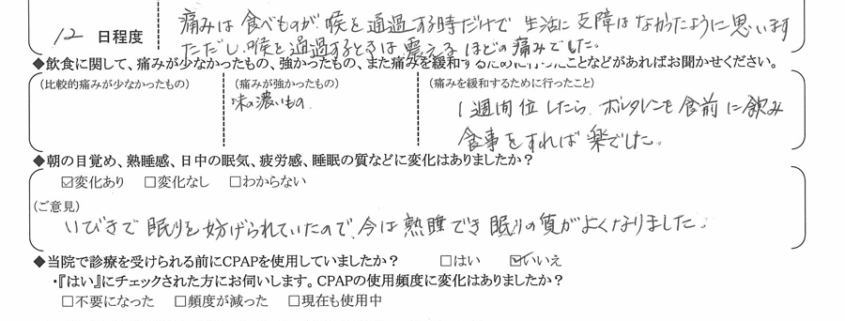 痛みは食べものが喉を通過する時だけで生活に支障はなかったように思います
12 日程度
ただし、喉を通過するときは震えるほどの痛みでした。
◆飲食に関して、痛みが少なかったもの、強かったもの、また痛みを緩和するために行ったことなどがあればお聞かせください。
(比較的痛みが少なかったもの) (痛みが強かったもの) (痛みを緩和するために行ったこと)
味の濃いもの
1週間位したら、ボルタレンを食前に飲み
食事をすれば楽でした。
◆朝の目覚め、熟睡感、日中の眠気、疲労感、睡眠の質などに変化はありましたか?
☑変化あり □変化なし □わからない
(ご意見)
いびきで眠りを妨げられていたので、今は熟睡でき眠りの質がよくなりました。
◆当院で診療を受けられる前にCPAPを使用していましたか? □はい ☑いいえ
・『はい』にチェックされた方にお伺いします。CPAPの使用頻度に変化はありましたか?
□不要になった □頻度が減った □現在も使用中